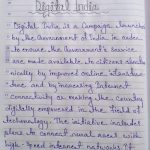 Digital India
Digital India is a Campaign launched
by the Government of India in order
to ensure the Government's Service
are made available to citizens electro
nically by improved online infrastruc
ture and by increasing Internet
connectivity or making the Country
digitally empowered in the field of
technology. The initiative includes
plans to connect rural areas with
high-speed internet networks. It